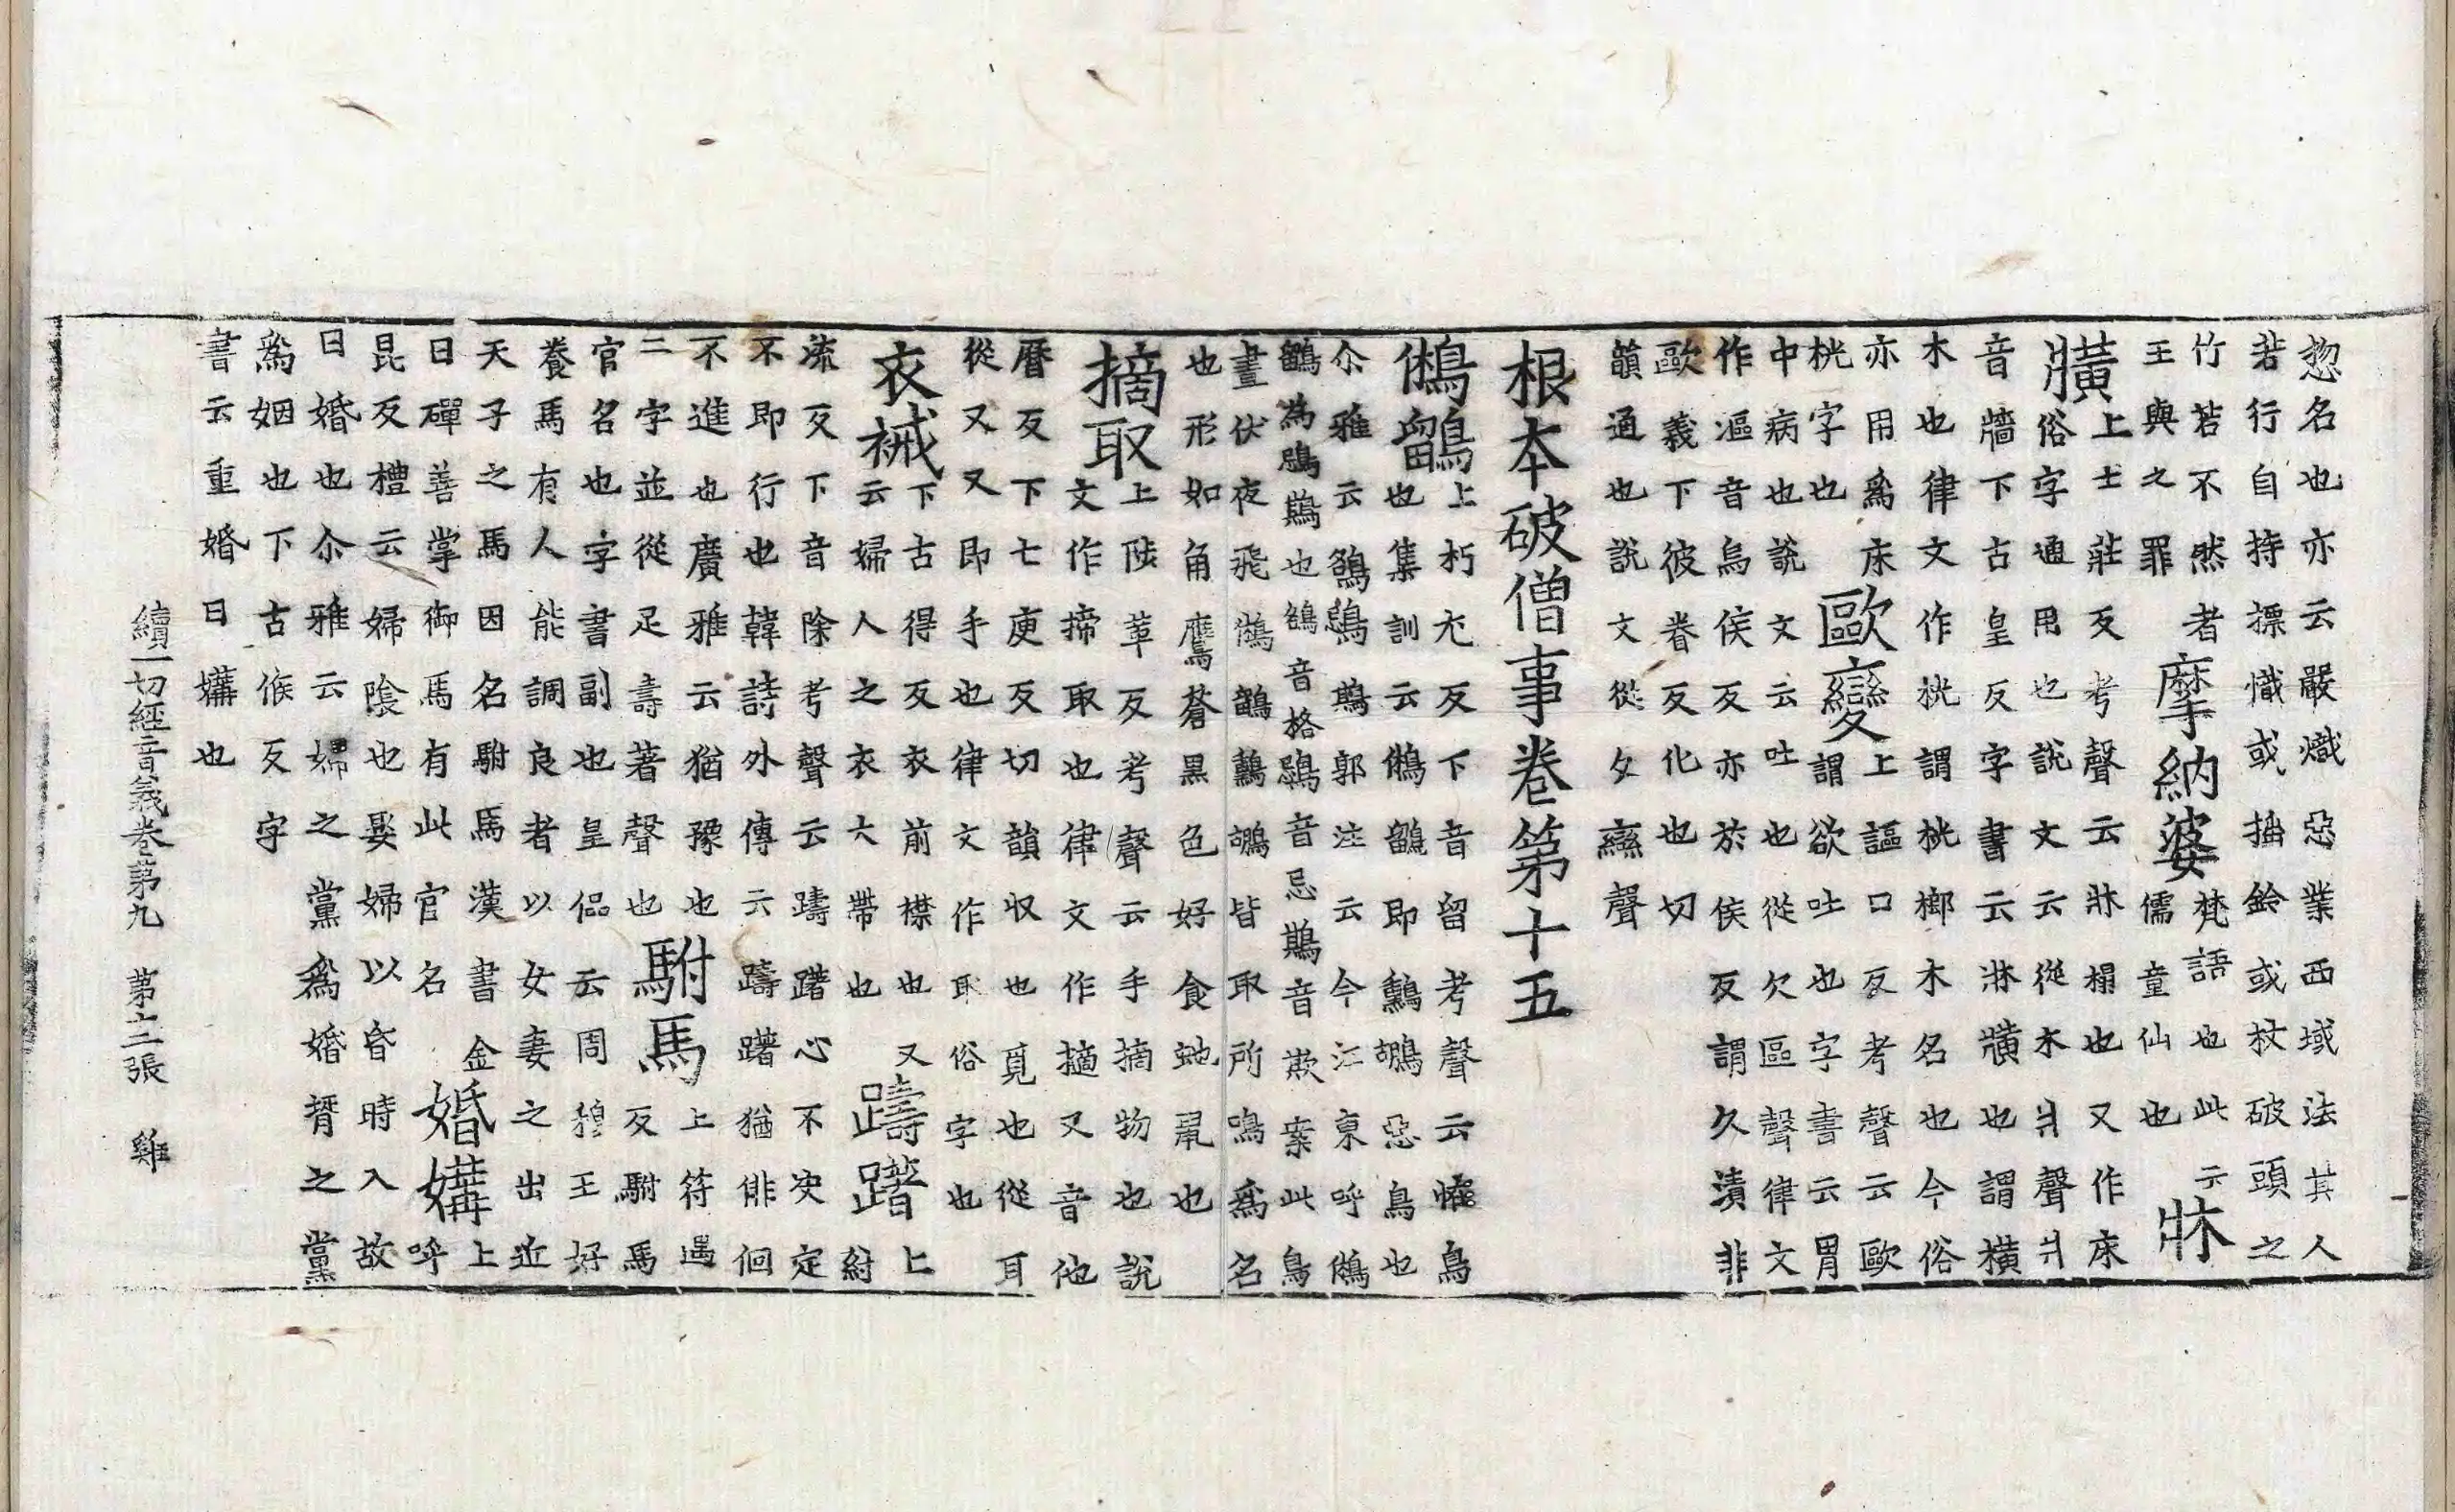 惣名也亦云嚴熾惡業西域法其人
若行自持摽熾或揷鈴或杖破頭之
竹若不然者
王與之罪
摩納婆
梵語也此云
儒童仙也
牀
橫
上士莊反考聲云牀榻也又作床
俗字通用也說文云從木爿聲爿
音牆下古皇反字書云牀橫也謂橫
木也律文作桄謂桄榔木名也今俗
亦用爲床
桄字也
歐變
上謳口反考聲云歐
謂欲吐也字書云胃
中病也說文云吐也從欠區聲律文
作漚音烏侯反亦於侯反謂久漬非
歐義下彼眷反化也切
韻通也說文從攵䜌聲
根本破僧事卷第十五
鵂鶹
上朽尢反下音留考聲云惟鳥
也集訓云鵂鶹即鸋鴂惡鳥也
尒雅云鵅鵋鶀郭注云今江東呼鵂
鶹為鵋鶀也鵅音格鵋音忌鶀音欺案此鳥
晝伏夜飛鵂鶹皆取所鳴爲名
也形如角鷹蒼黑色好食虵鼠也
摘取
上陟革反考聲云手摘物也說
文作擿取也律文作擿又音他
曆反下七庾反切韻収也覓也從耳
從又又即手也律文作取俗字也
衣裓
下古得反衣前襟也又
云婦人之衣大帶也
躊躇
上
紂
流反下音除考聲云躊躇心不決定
不即行也韓詩外傳云躊躇猶俳佪
不進也廣雅云猶豫也
二字並從足壽著聲也
駙馬
上符遇
反駙馬
官名也字書副也皇侃云周穆王好
養馬有人能調良者以女妻之出近
天子之馬因名駙馬漢書金
日磾善掌御馬有此官名
婚媾
上
呼
昆反禮云婦陰也娶婦以昏時入故
曰婚也尒雅云婦之黨爲婚壻之黨
爲姻也下古候反字
書云重婚曰媾也
續一切經音義卷第九 第十二張 雞